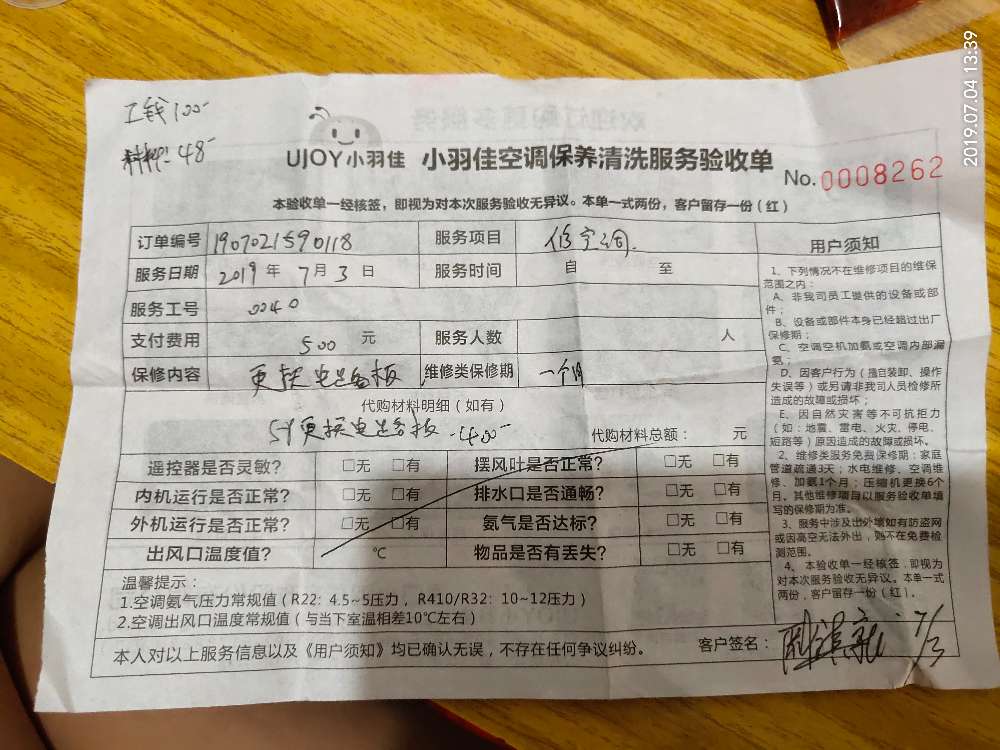 2019.07.04 13:39
工钱100-
材料 48-
UJOY小羽佳 小羽佳空调保养清洗服务验收单
No. 0008262
本验收单一经核签，即视为对本次服务验收无异议。本单一式两份，客户留存一份（红）
订单编号 1907021590118 服务项目
服务日期 2019 年 7 月 3 日 服务时间 自 至
服务工号 0040
支付费用 500 元 服务人数 人
保修内容 更换电器板 维修类保修期 一个月
代购材料明细（如有）
更换电器板 400-
代购材料总额： 元
遥控器是否灵敏？ □无 □有 摆风叶是否正常？ □无 □有
内机运行是否正常？ □无 □有 排水口是否通畅？ □无 □有
外机运行是否正常？ □无 □有 氨气是否达标？ □无 □有
出风口温度值？ ℃ 物品是否有丢失？ □无 □有
温馨提示：
1.空调氨气压力常规值（R22: 4.5~5压力， R410/R32: 10~12压力）
2.空调出风口温度常规值（与当下室温相差10℃左右）
本人对以上服务信息以及《用户须知》均已确认无误，不存在任何争议纠纷。
客户签名： 7/3
用户须知
1、下列情况不在维修项目的维保
范围之内：
A、非我司员工提供的设备或部
件；
B、设备或部件本身已经超过出厂
保修期；
C、空调空机加氨或空调内部漏
氨；
D、因客户行为（擅自装卸、操作
失误等）或另请非我司人员检修所
造成的故障或损坏；
E、因自然灾害等不可抗拒力
（如：地震、雷电、火灾、停电、
短路等）原因造成的故障或损坏。
2、维修类服务免费保修期：家庭
管道疏通3天；水电维修、空调维
修、加氨1个月；压缩机更换6个
月。其他维修项目以服务验收单填
写的保修期为准。
3、服务中涉及出外墙如有防盗网
或因高空无法外出，则不在免费检
测范围。
4、本验收单一经核签，即视为
对本次服务验收无异议。本单一式
两份，客户留存一份（红）。